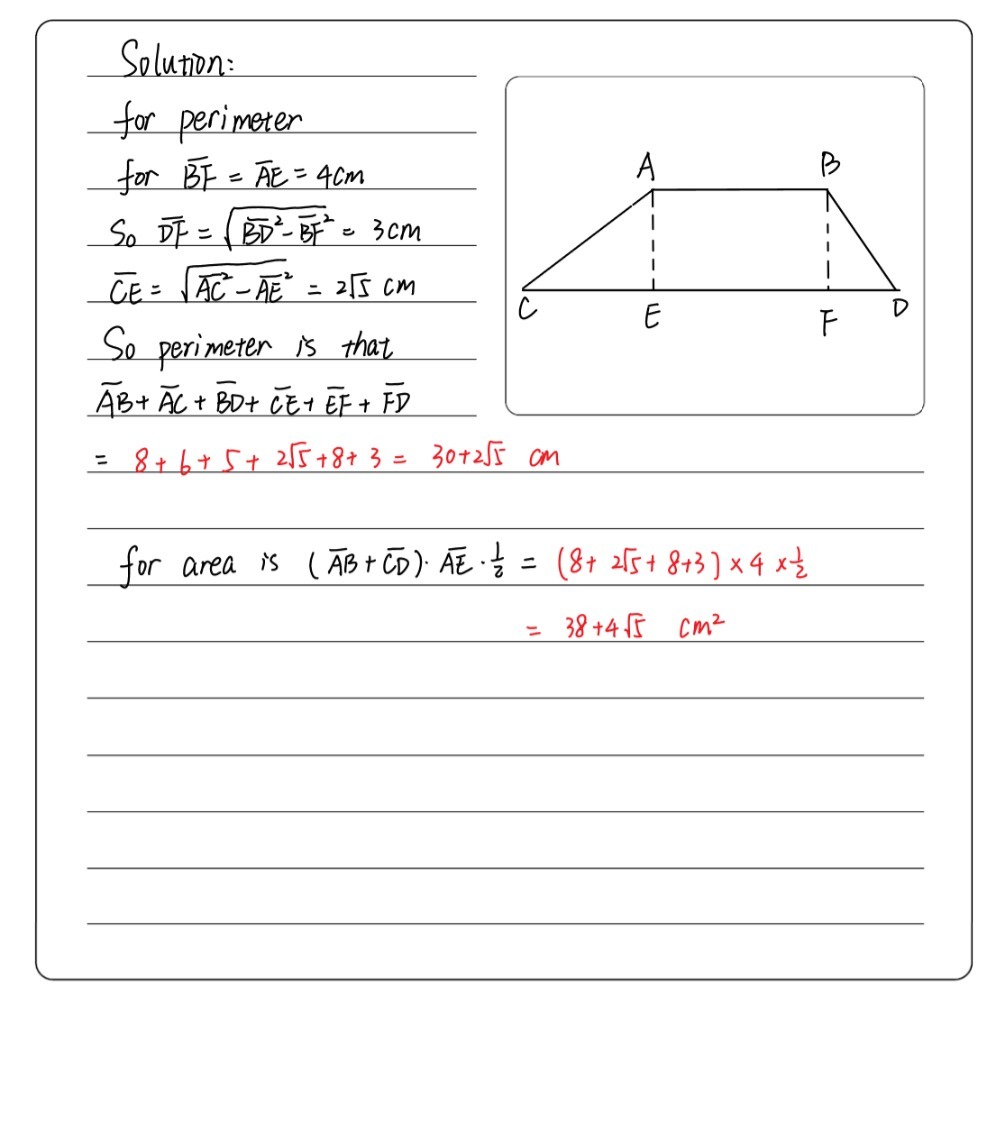 Solution:
for perimeter
for B̅F̅ = A̅E̅ = 4cm
So D̅F̅ = √(B̅D̅² - B̅F̅²) = 3cm
C̅E̅ = √(A̅C̅² - A̅E̅²) = 2√5 cm
So perimeter is that
A̅B̅ + A̅C̅ + B̅D̅ + C̅E̅ + E̅F̅ + F̅D̅
= 8 + 6 + 5 + 2√5 + 8 + 3 = 30+2√5 cm
for area is (A̅B̅ + C̅D̅) · A̅E̅ · 1/2 = (8 + 2√5 + 8+3) × 4 × 1/2
= 38+4√5 cm²
A B
C E F D